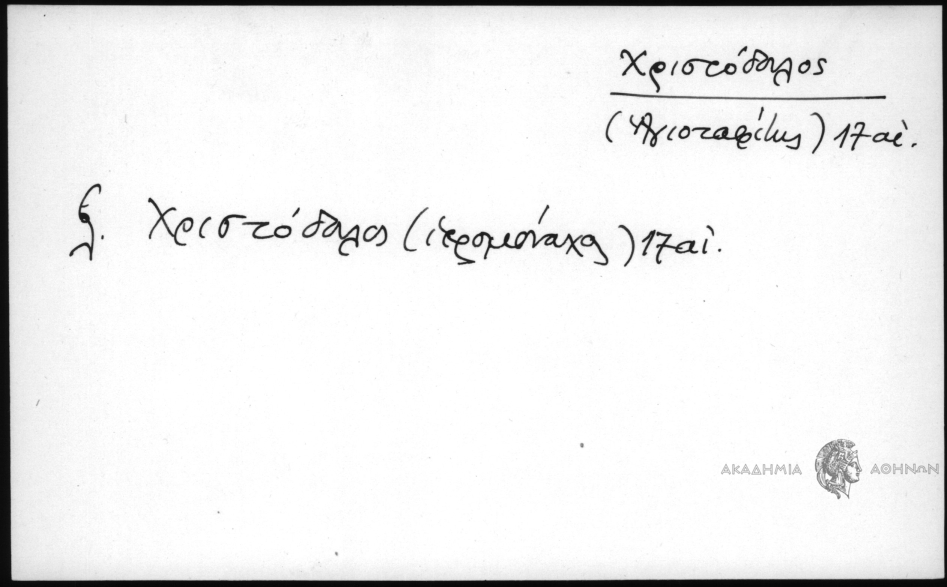 Χριστόδουλος
(Ἁγιοταφίτης) 17 αἰ.
βλ. Χριστόδουλος (ἱερομόναχος) 17 αἰ.
ΑΚΑΔΗΜΙΑ ΑΘΗΝΩΝ